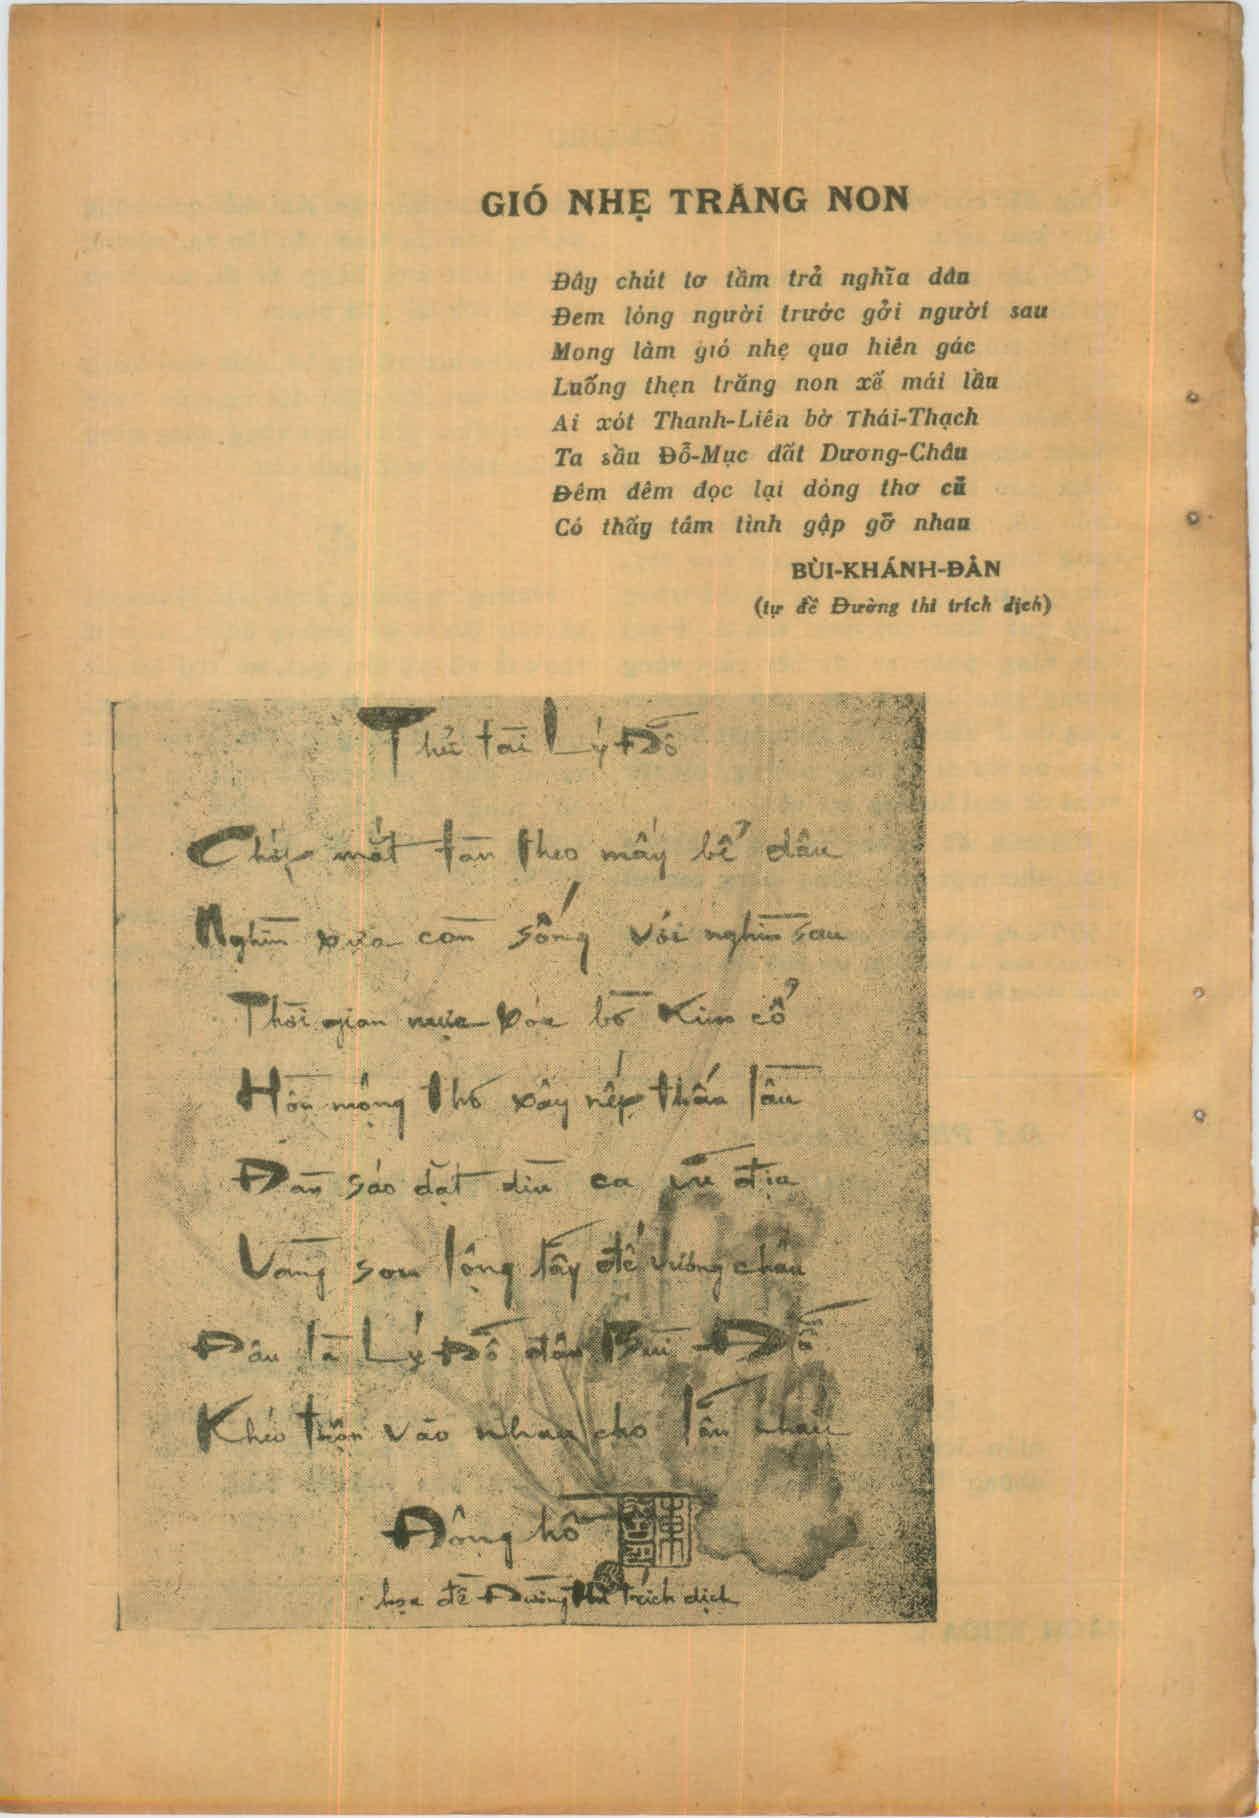 GIÓ NHẸ TRĂNG NON
Đây chút tơ tằm trả nghĩa dâu
Đem lòng người trước gởi người sau
Mong làm gió nhẹ qua hiên gác
Luống thẹn trăng non xế mái lầu
Ai xót Thanh-Liên bờ Thái-Thạch
Ta sầu Đỗ-Mục đất Dương-Châu
Đêm đêm đọc lại dòng thơ cũ
Có thấy tâm tình gập gỡ nhau
BÙI-KHÁNH-ĐẢN
(tự đề Đường thi trích dịch)
Thử tài Lý Đỗ
Chớp mắt tàn theo mấy bể dâu
Nghìn xưa còn sống với nghìn sau
Thời gian mực xóa bờ kim cổ
Hồn mộng thơ xây nếp thẩn lầu
Đàn sáo dặt dìu ca địu
Vàng son lộng lẫy đế vương châu
Đâu là Lý Đỗ đâu Bùi Đỗ
Khéo trộn vào nhau cho lẫn nhau
Đông hồ
họa đề Đường thi trích dịch